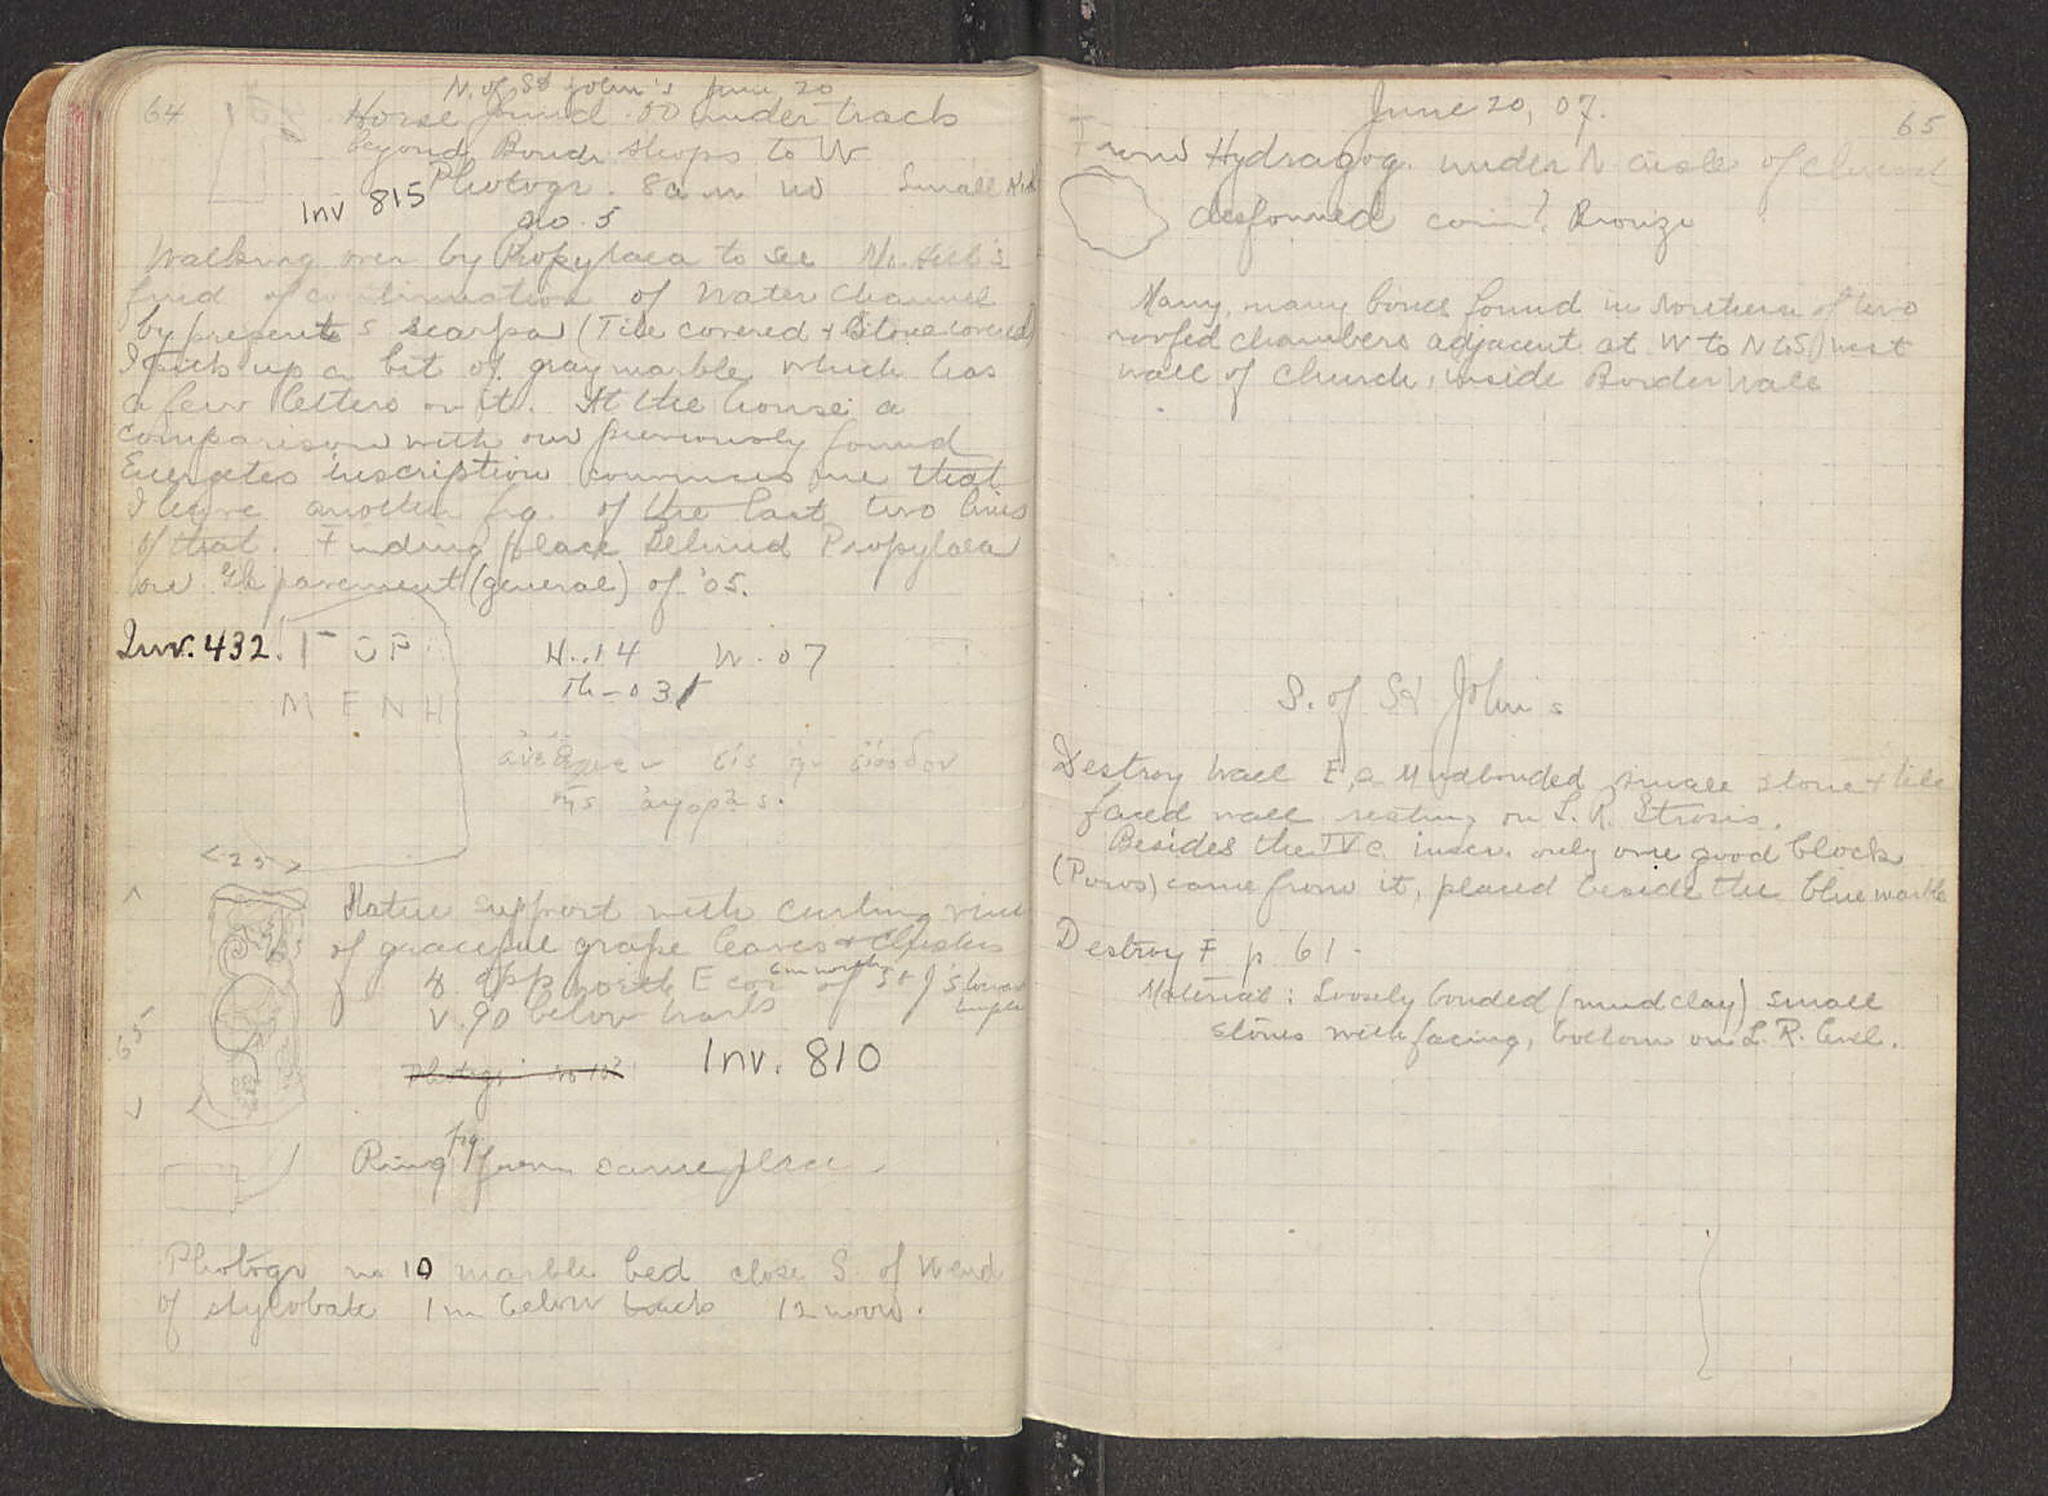 64
N. of St John's June 20
Horse found .50 under track
beyond Boud. Shops to W
Photogr. 8 a m no Small
Inv 815
no. 5
Walking over by Propylaea to see Mr. Hill's
find of continuation of Water Channel
by present S scarpa (Tile covered + Stone covered)
I pick up a bit of gray marble which has
a few letters on it. At the house a
comparison with our previously found
Euergetes inscription convinces me that
I have another frg. of the last two lines
of that. Finding place Behind Propylaea
on Gk pavement (general) of '05.
Inv. 432.
Μ Ε Ν Η
H. .14 W. .07
Th - 03
εἰς τὴν εἴσοδον
τῆς ἀγορᾶς.
< 25 >
Statue support with curling vine
of graceful grape leaves + clusters
of St J's
V. 90 below tracks
65
Photogr. no 10
Inv. 810
Ring frg. from same place
Photogr no 10 marble bed close S of W end
of stylobate 1 m below track 12 noon.
June 20, 07.
65
From Hydragog. under N aisle of church
desformed coin? Bronze
Many, many bones found in Northern of two
roofed chambers adjacent at W to N (& S) west
wall of church, inside Border Wall
S. of St John's
Destroy Wall E, a Mudbonded small stone + tile
faced wall resting on L. R. Strosis.
Besides the IV c. inscr. only one good block
(Poros) came from it, placed beside the blue marble
Destroy F p 61 -
Material: Loosely bonded (mud clay) small
stones with facing, bottom on L. R. level.